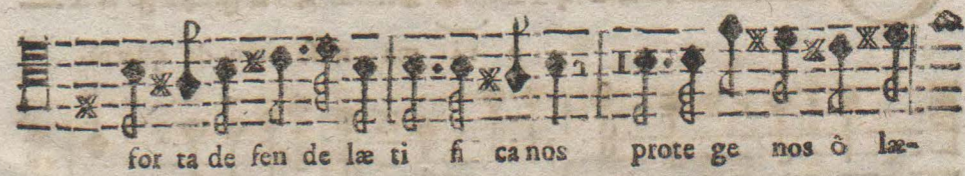 for ta de fen de læ ti fi ca nos prote ge nos ô læ-